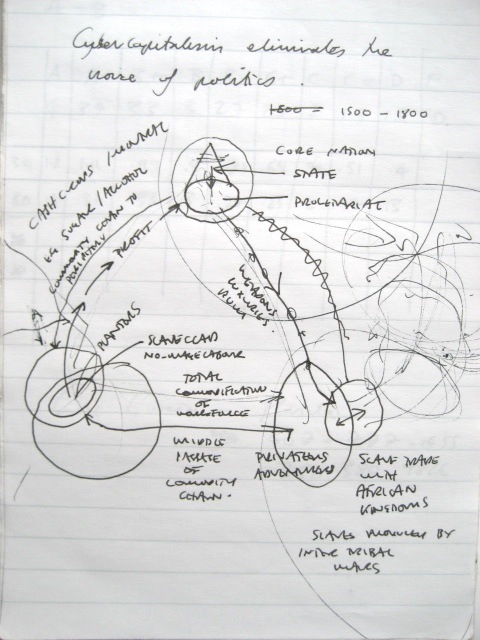 Cybercapitalism eliminates the
noise of politics.
1500 - 1800
CORE NATION
STATE
PROLETARIAT
CASH CROPS / MINERAL
EG SUGAR / ALCOHOL
COMMODITY CHAIN TO
PERIPHERY
PROFIT
WEAPONS
LUXURIES
PLANTORS
SLAVE CLASS
NO-WAGE LABOUR
TOTAL
COMMODIFICATION
OF
WORKFORCE
MIDDLE
PASSAGE
OF
COMMODITY
CHAIN.
PRIVATEERS
ADVENTURERS
SLAVE TRADE
WITH
AFRICAN
KINGDOMS
SLAVES PROVIDED BY
INTER TRIBAL
WARS